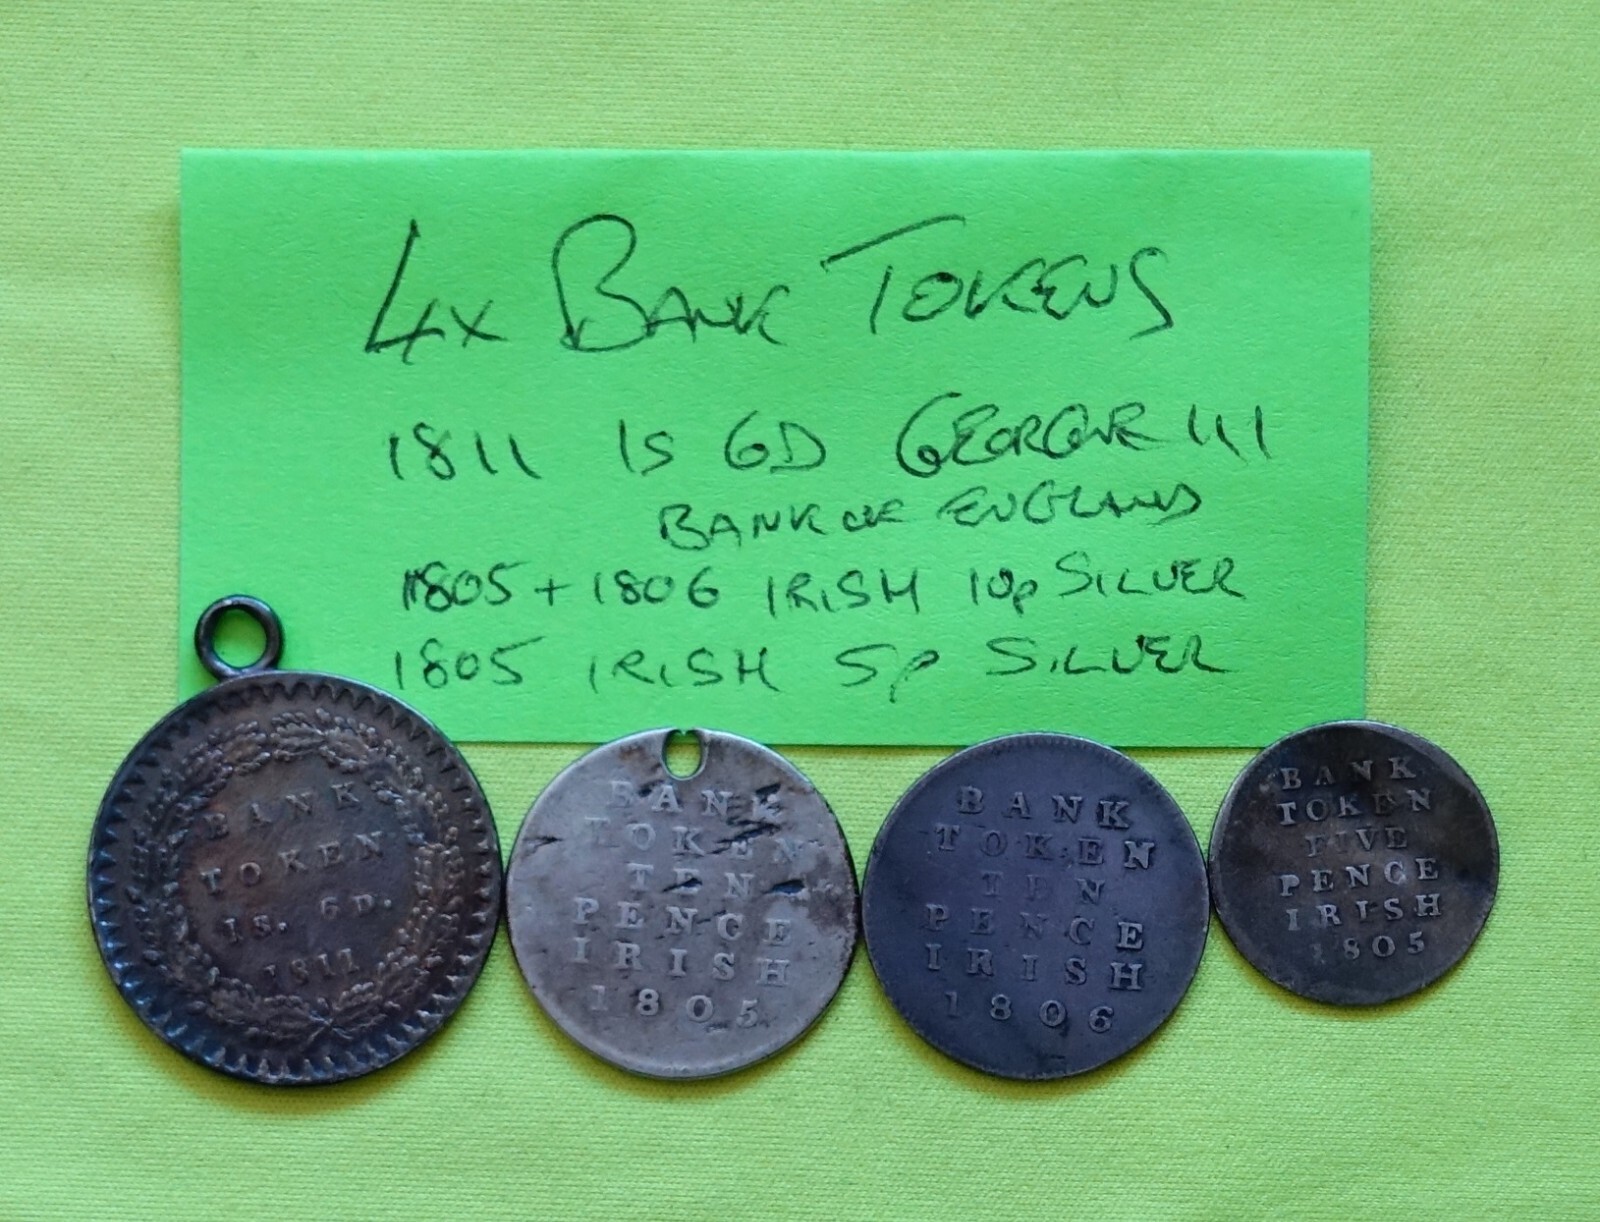 4x BANK TOKENS
1811 1s 6D GEORGE III
BANK OF ENGLAND
1805 + 1806 IRISH 10p SILVER
1805 IRISH 5p SILVER
BANK
TOKEN
1s. 6D.
1811
BANK
TOKEN
TEN
PENCE
IRISH
1805
BANK
TOKEN
TEN
PENCE
IRISH
1806
BANK
TOKEN
FIVE
PENCE
IRISH
1805